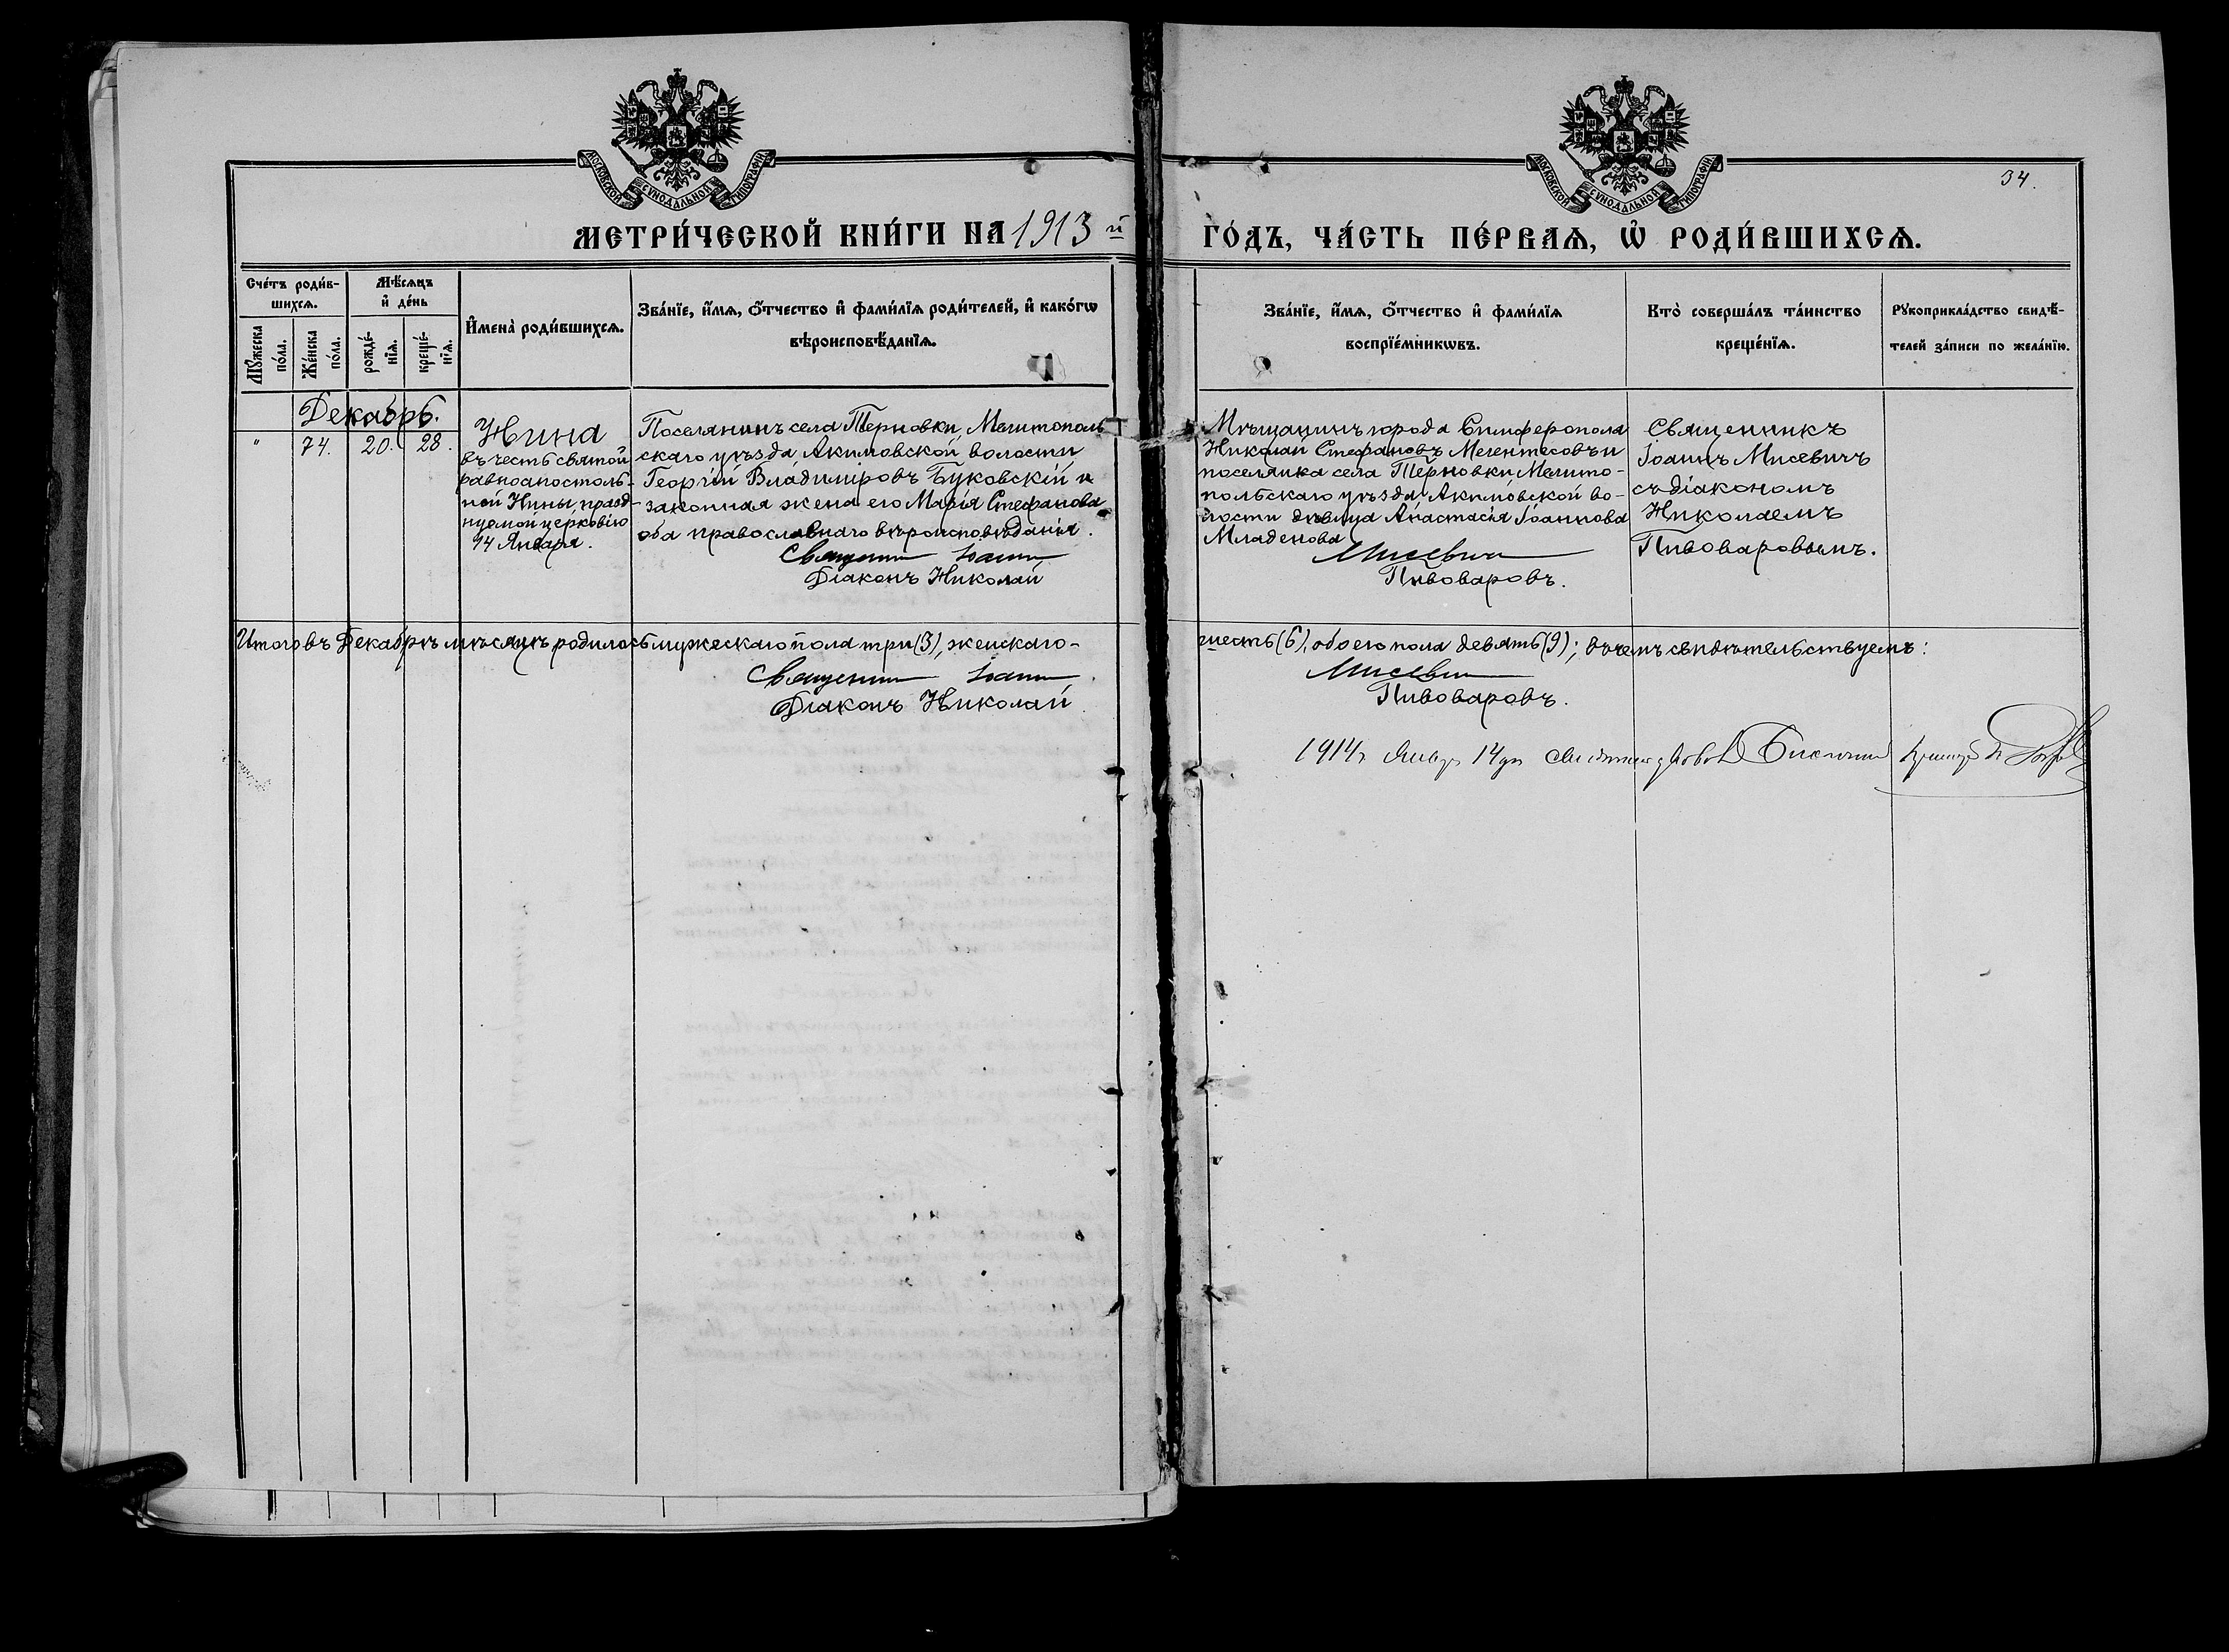 МОСКОВСКОЙ СѴНОДАЛЬНОЙ ТИПОГРАФІИ
МОСКОВСКОЙ СѴНОДАЛЬНОЙ ТИПОГРАФІИ
34.
МЕТРИ́ЧЕСКОЙ КНИ́ГИ НА 1913 й
ГО́ДЪ, ЧА́СТЬ ПЕ́РВАѦ, Ѡ҆ РОДИ́ВШИХСѦ.
Сче́тъ роди́в-
шихсѧ.
Мѣ́сѧцъ
и҆ де́нь
Мꙋ́жеска
по́ла.
Же́нска
по́ла.
рожде́-
нїѧ.
креще́-
нїѧ.
И҆мена̀ роди́вшихсѧ.
Зва́нїе, и҆́мѧ, ѻ҆́тчество и҆ фами́лїѧ роди́телей, и҆ како́гѡ
вѣроисповѣ́данїѧ.
Зва́нїе, и҆́мѧ, ѻ҆́тчество и҆ фами́лїѧ
воспрїе́мникѡвъ.
Кто̀ соверша́лъ та́инство
креще́нїѧ.
Рꙋкоприкла́дство свидѣ́-
телей за́писи по жела́нїю.
Декабрь.
" 74. 20. 28.
Нина
въ честь святой
равноапостоль-
ной Нины, празд-
нуемой церковію
14 Января.
Поселянинъ села Терновки, Мелитополь
скаго уѣзда, Акимовской волости
Георгій Владиміровъ Буковскій и
законная жена его Марія Стефанова
оба православнаго вѣроисповѣданія.
Священникъ Іоаннъ
Діаконъ Николай
Мѣщанинъ города Симферополя
Николай Стефановъ Мелентесовъ и
поселянка села Терновки, Мелито-
польскаго уѣзда, Акимовской во-
лости дѣвица Анастасія Іоаннова
Младенова
Мисевичъ
Пивоваровъ.
Священникъ
Іоаннъ Мисевичъ
съ діакономъ
Николаемъ
Пивоваровымъ.
Итого въ Декабрѣ мѣсяцѣ родилось мужескаго пола три (3), женскаго-
шесть (6), обоего пола девять (9); въ чемъ свидѣтельствуемъ:
Священникъ Іоаннъ
Діаконъ Николай
Мисевичъ
Пивоваровъ.
1914 г Январ 14 дн